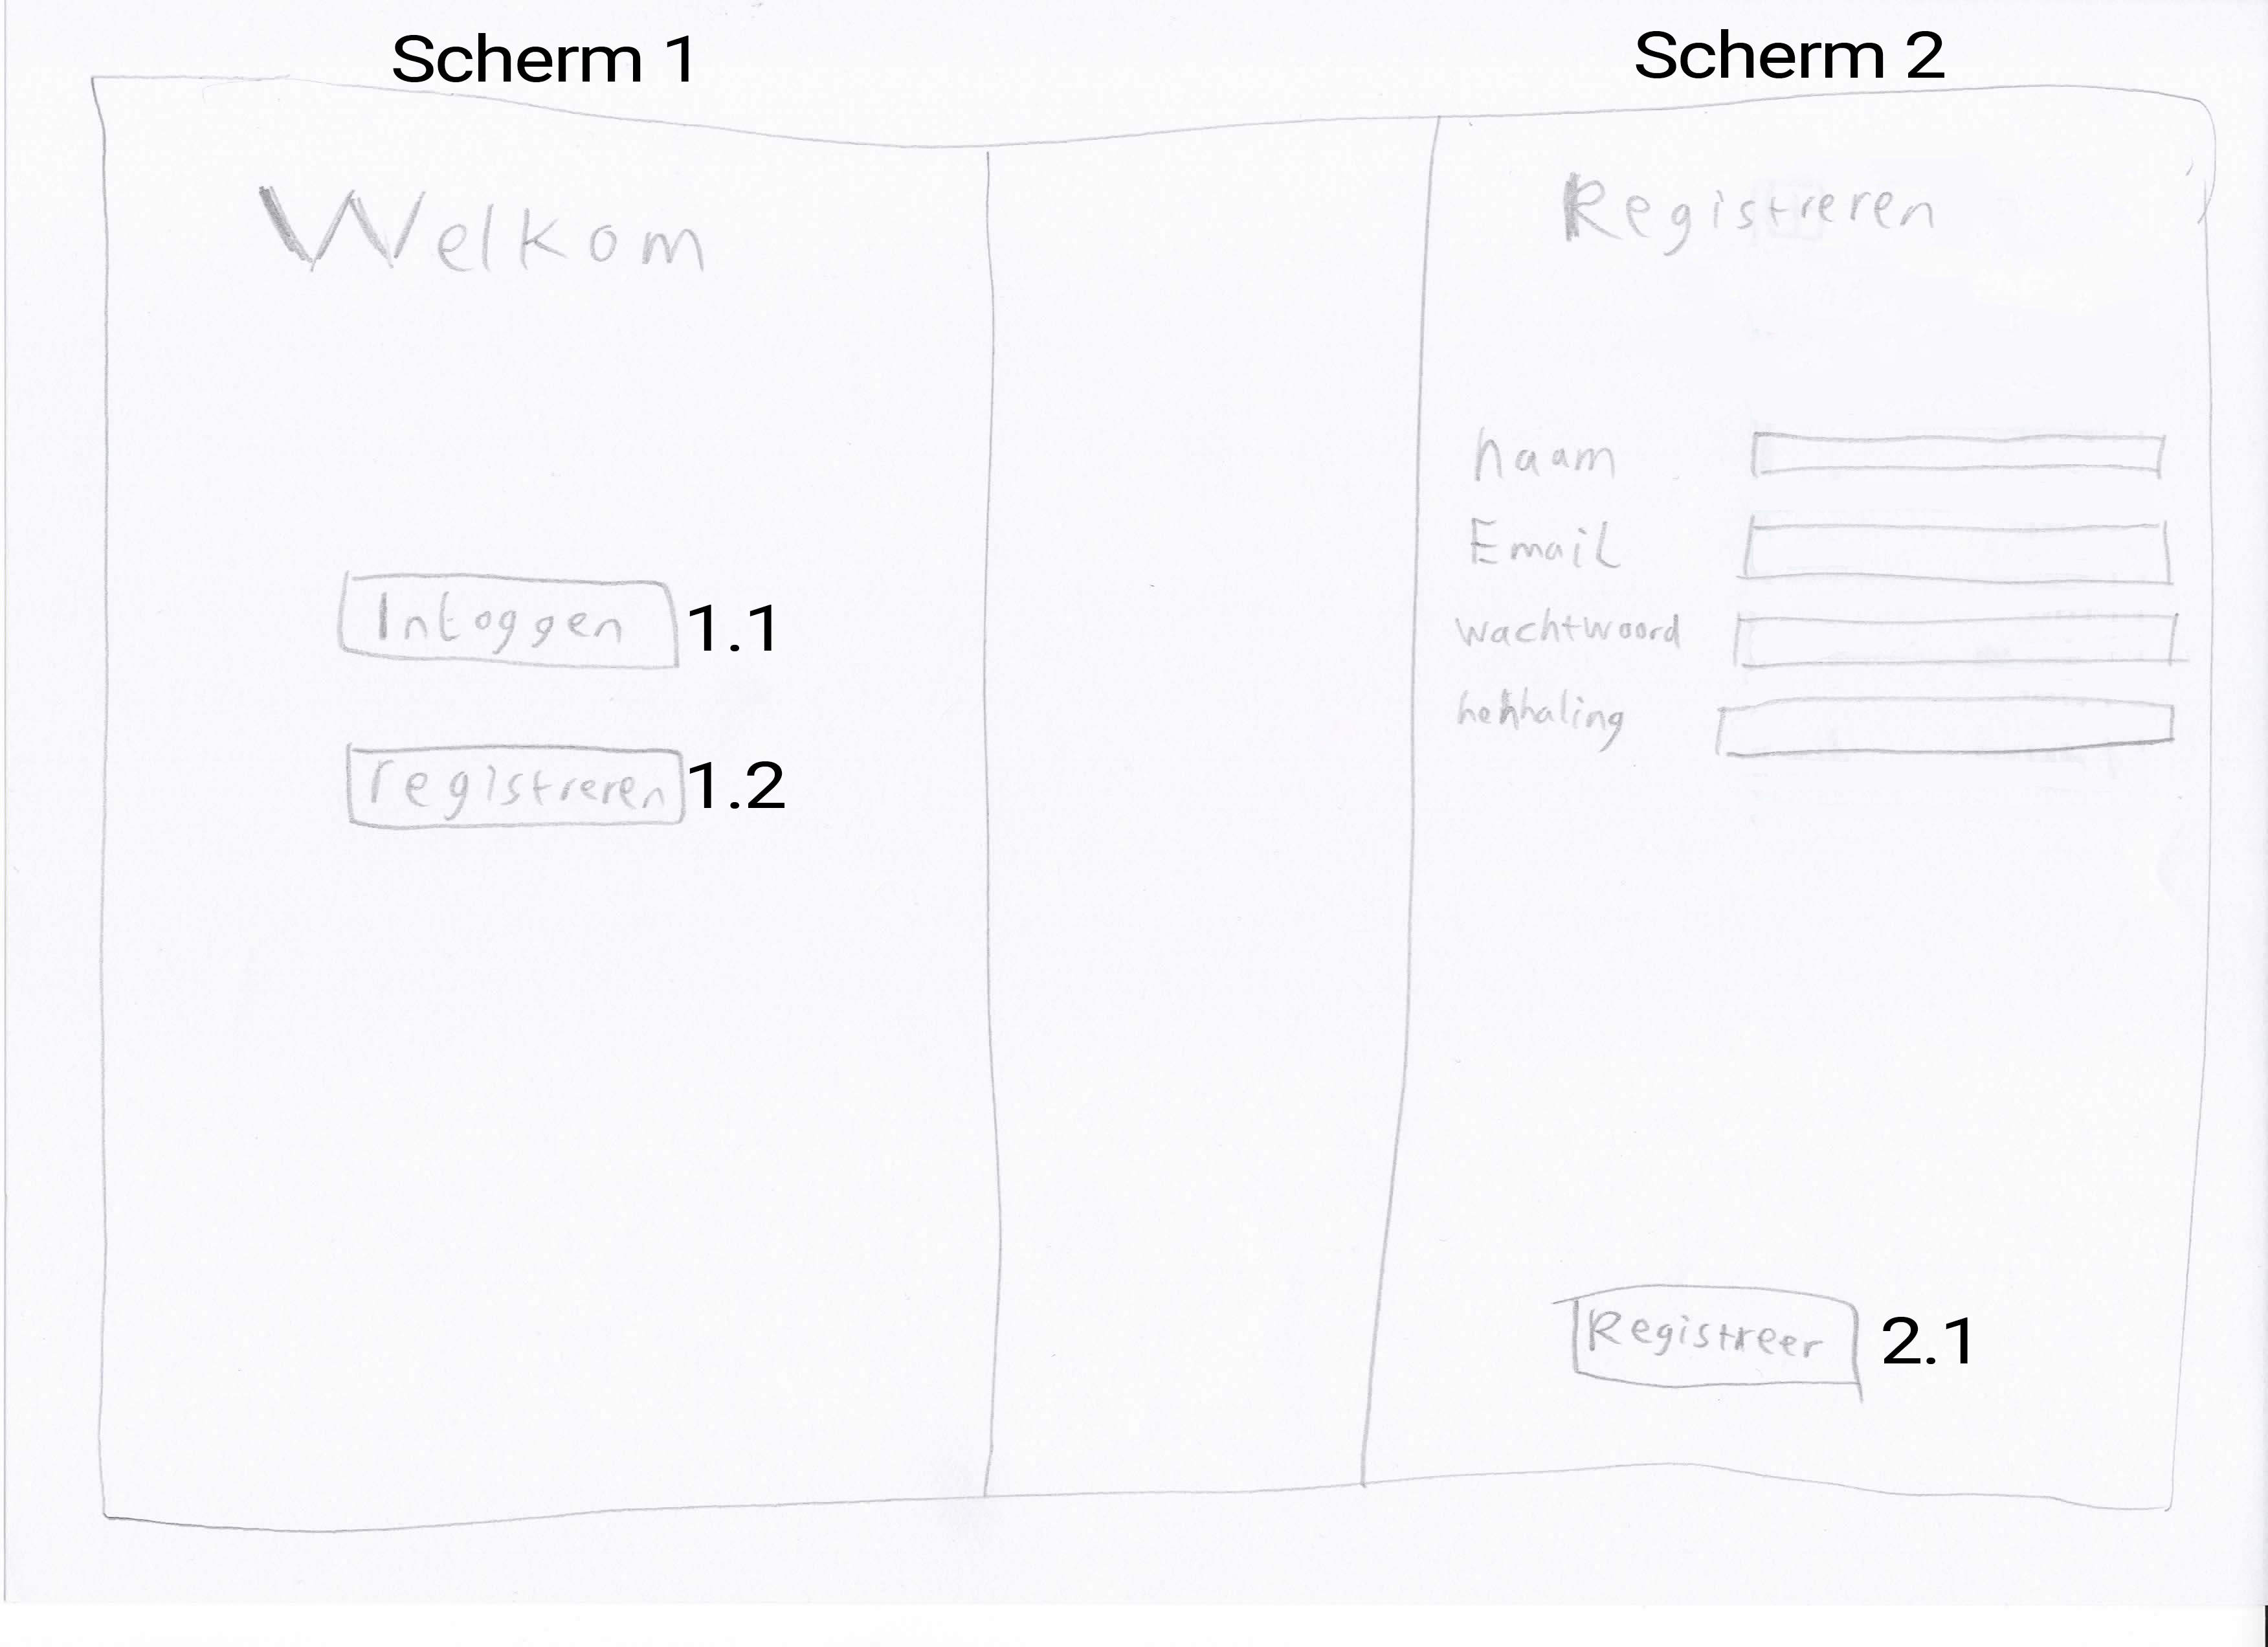 Scherm 1
Welkom
Inloggen 1.1
registreren 1.2
Scherm 2
Registreren
naam
Email
wachtwoord
Registreer 2.1